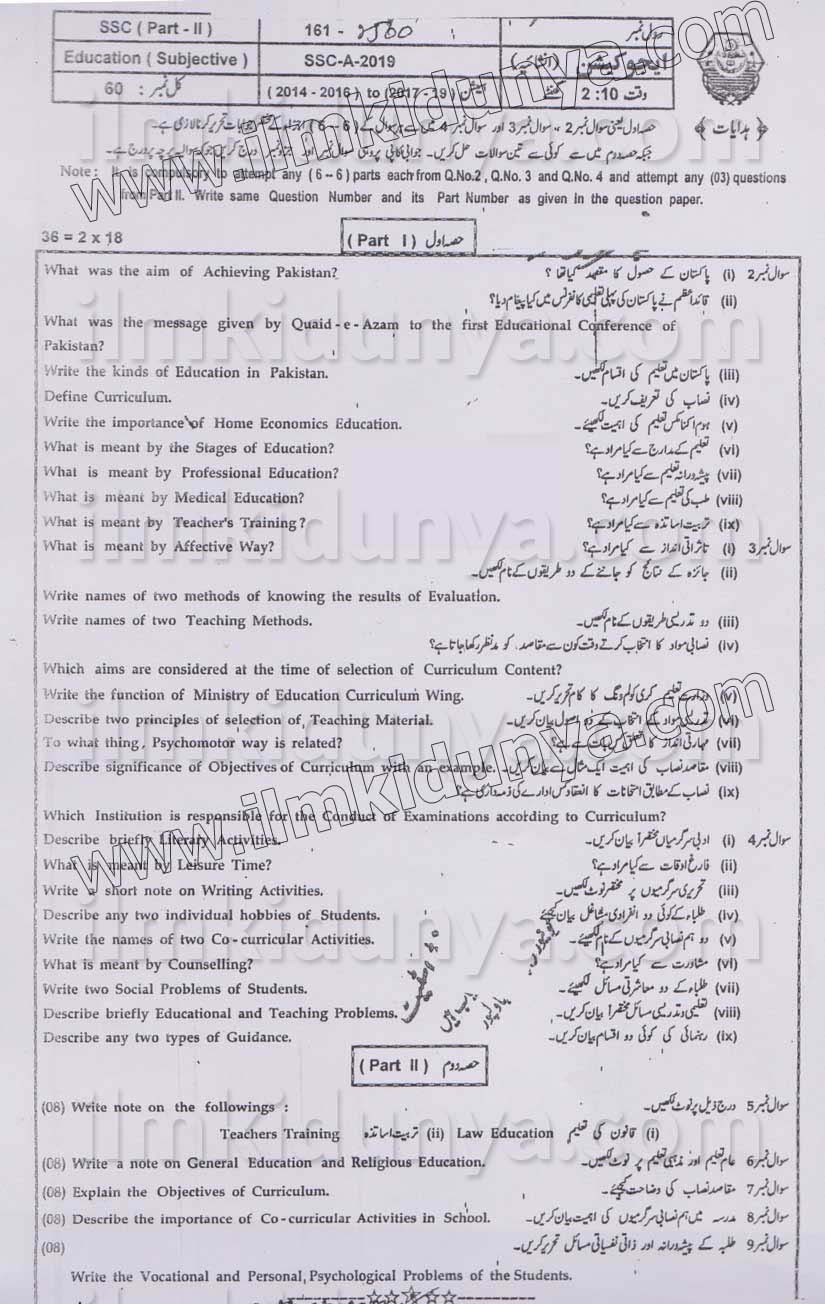 SSC ( Part - II ) 161 - سوال نمبر
Education ( Subjective ) SSC-A-2019 ایجوکیشن (انشائیہ)
کل نمبر : 60 ( 2014 - 2016 ) to (2017 - 19) سیشن وقت 2:10 گھنٹے
﴿ ہدایات ﴾ حصہ اول یعنی سوال نمبر 2 ، سوال نمبر 3 اور سوال نمبر 4 میں سے ہر سوال کے (6 – 6) اجزاء کے مختصر جوابات تحریر کرنا لازمی ہے۔
جبکہ حصہ دوم میں سے کوئی سے تین سوالات حل کریں۔ جوابی کاپی پر وہی سوال نمبر اور جزو نمبر درج کریں جو کہ سوالیہ پرچہ پر درج ہے۔
Note: It is compulsory to attempt any (6 – 6) parts each from Q.No.2 , Q.No. 3 and Q.No. 4 and attempt any (03) questions
from Part II. Write same Question Number and its Part Number as given in the question paper.
36 = 2 x 18 (Part I) حصہ اول
What was the aim of Achieving Pakistan? سوال نمبر 2 (i) پاکستان کے حصول کا مقصد کیا تھا ؟
(ii) قائداعظم نے پاکستان کی پہلی تعلیمی کانفرنس میں کیا پیغام دیا؟
What was the message given by Quaid - e - Azam to the first Educational Conference of
Pakistan?
Write the kinds of Education in Pakistan. (iii) پاکستان میں تعلیم کی اقسام لکھیں۔
Define Curriculum. (iv) نصاب کی تعریف کریں۔
Write the importance of Home Economics Education. (v) ہوم اکنامکس تعلیم کی اہمیت لکھیئے۔
What is meant by the Stages of Education? (vi) تعلیم کے مدارج سے کیا مراد ہے؟
What is meant by Professional Education? (vii) پیشہ ورانہ تعلیم سے کیا مراد ہے؟
What is meant by Medical Education? (viii) طب کی تعلیم سے کیا مراد ہے؟
What is meant by Teacher's Training? (ix) تربیت اساتذہ سے کیا مراد ہے؟
What is meant by Affective Way? سوال نمبر 3 (i) تاثراتی انداز سے کیا مراد ہے؟
(ii) جائزہ کے نتائج کو جاننے کے دو طریقوں کے نام لکھیں۔
Write names of two methods of knowing the results of Evaluation.
Write names of two Teaching Methods. (iii) دو تدریسی طریقوں کے نام لکھیں۔
(iv) نصابی مواد کا انتخاب کرتے وقت کون سے مقاصد کو مدنظر رکھا جاتا ہے؟
Which aims are considered at the time of selection of Curriculum Content?
Write the function of Ministry of Education Curriculum Wing. (v) وزارت تعلیم کری کولم ونگ کا کام تحریر کریں۔
Describe two principles of selection of Teaching Material. (vi) تدریسی مواد کے انتخاب کے دو اصول بیان کریں۔
To what thing, Psychomotor way is related? (vii) مہارتی انداز کا تعلق کس بات سے ہے؟
Describe significance of Objectives of Curriculum with an example. (viii) مقاصد نصاب کی اہمیت ایک مثال سے بیان کریں۔
(ix) نصاب کے مطابق امتحانات کا انعقاد کس ادارے کی ذمہ داری ہے؟
Which Institution is responsible for the Conduct of Examinations according to Curriculum?
Describe briefly Literary Activities. سوال نمبر 4 (i) ادبی سرگرمیاں مختصراً بیان کریں۔
What is meant by Leisure Time? (ii) فارغ اوقات سے کیا مراد ہے؟
Write a short note on Writing Activities. (iii) تحریری سرگرمیوں پر مختصر نوٹ لکھیں۔
Describe any two individual hobbies of Students. (iv) طلباء کے کوئی دو انفرادی مشاغل بیان کیجئے
Write the names of two Co - curricular Activities. (v) دو ہم نصابی سرگرمیوں کے نام لکھیئے۔
What is meant by Counselling? (vi) مشاورت سے کیا مراد ہے؟
Write two Social Problems of Students. (vii) طلباء کے دو معاشرتی مسائل لکھیئے۔
Describe briefly Educational and Teaching Problems. (viii) تعلیمی و تدریسی مسائل مختصراً بیان کریں۔
Describe any two types of Guidance. (ix) رہنمائی کی کوئی دو اقسام بیان کریں۔
(Part II) حصہ دوم
(08) Write note on the followings : سوال نمبر 5 درج ذیل پر نوٹ لکھیں۔
Teachers Training تربیت اساتذہ (ii) Law Education قانون کی تعلیم (i)
(08) Write a note on General Education and Religious Education. سوال نمبر 6 عام تعلیم اور مذہبی تعلیم پر نوٹ لکھیں۔
(08) Explain the Objectives of Curriculum. سوال نمبر 7 مقاصد نصاب کی وضاحت کیجئے۔
(08) Describe the importance of Co - curricular Activities in School. سوال نمبر 8 مدرسہ میں ہم نصابی سرگرمیوں کی اہمیت بیان کریں۔
(08) سوال نمبر 9 طلبہ کے پیشہ ورانہ اور ذاتی نفسیاتی مسائل تحریر کریں۔
Write the Vocational and Personal, Psychological Problems of the Students.
www.ilmkidunya.com
www.ilmkidunya.com
ilmkidunya.com
ilmkidunya.com
ilmkidunya.com
ilmkidunya.com
ilmkidunya.com